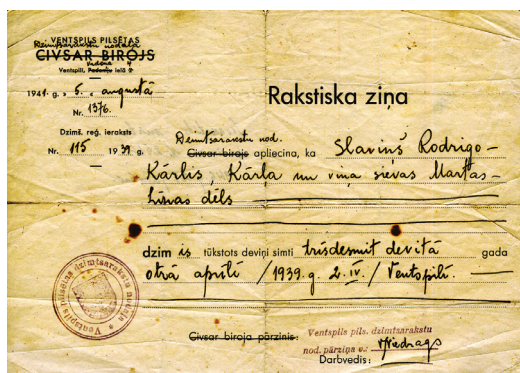 VENTSPILS PILSĒTAS
Dzimtsarakstu nodaļa
CIVSAR BIROJS
Ventspilī, ielā
1941. g. » 5. « augustā
Nr. 1376.
Dzimš. reģ. ieraksts
Nr. 115 1939. g.
Rakstiska ziņa
Dzimtsarakstu nod.
Civsar birojs apliecina, ka Slaviņš Rodrigo-
Kārlis, Kārļa un viņa sievas Martas-
Līnas dēls
dzim is tūkstots deviņi simti trīsdesmit devītā gada
otrā aprīlī /1939. g. 2. IV./ Ventspilī.
Ventspils pilsētas dzimtsarakstu nodaļa
Civsar biroja pārzinis:
Ventspils pils. dzimtsarakstu
nod. pārziņa v.:
Darbvedis: